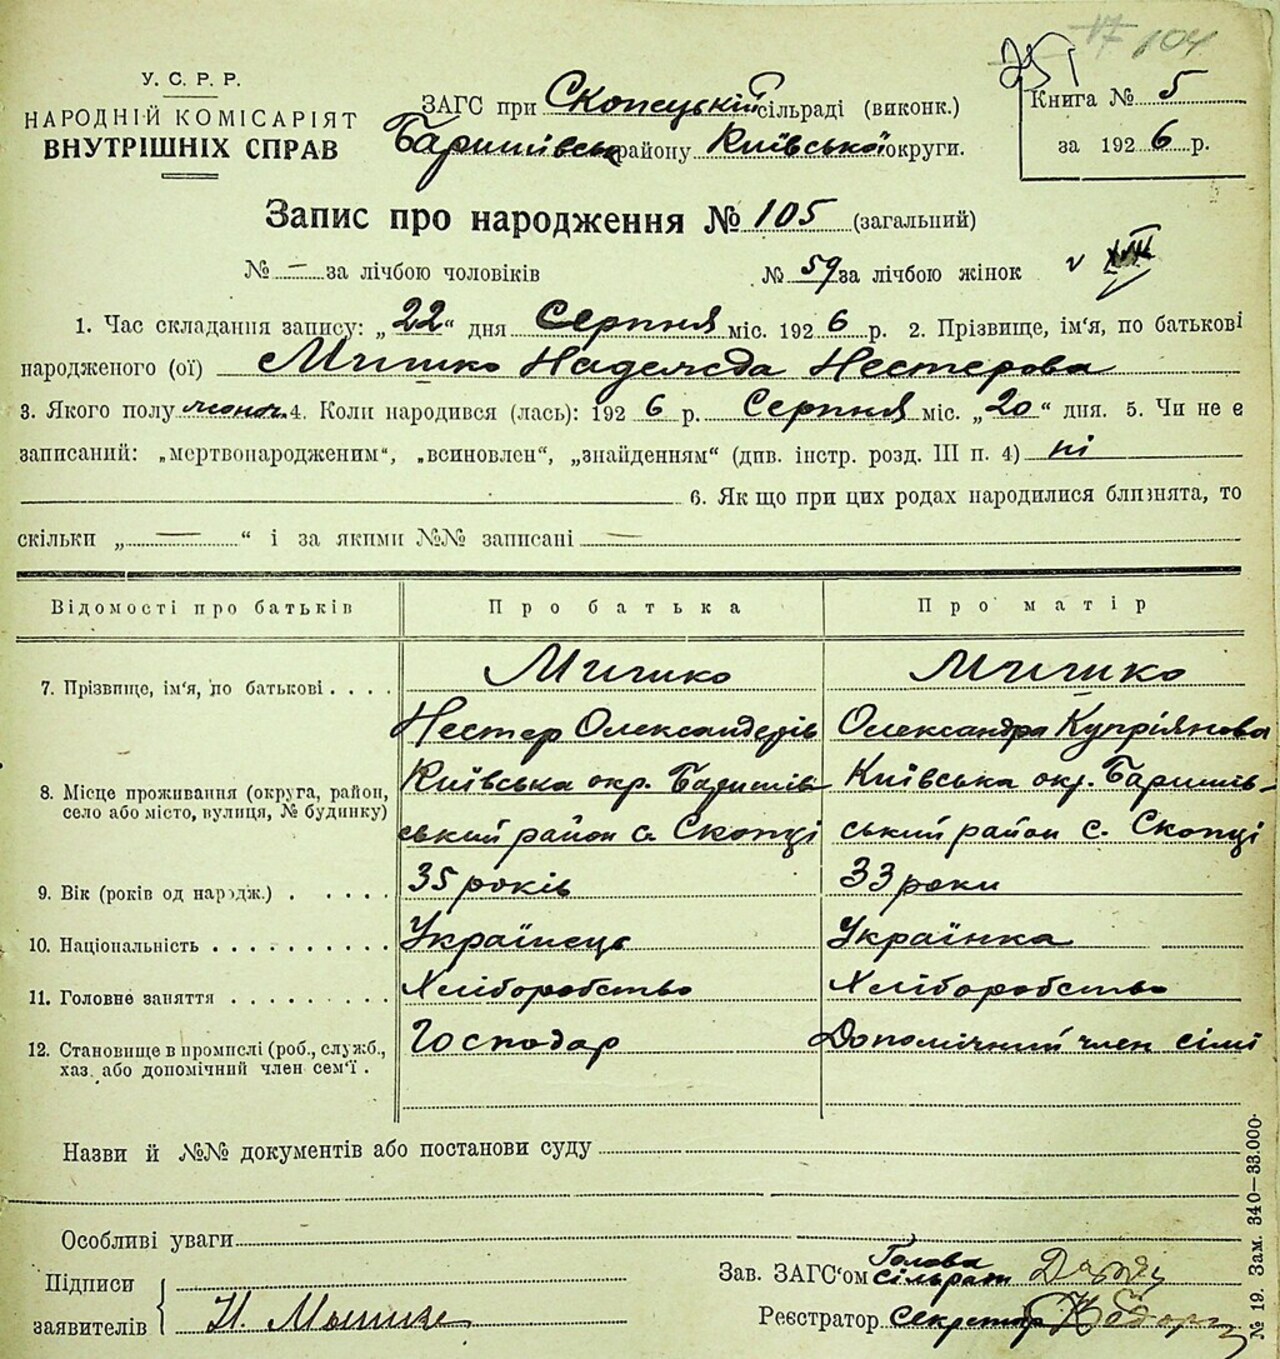 104
У. С. Р. Р.
НАРОДНІЙ КОМІСАРІЯТ
ВНУТРІШНІХ СПРАВ
ЗАГС при Скопецькій сільраді (виконк.)
Баришівськ району Київської округи.
Книга № 5
за 1926 р.
Запис про народження № 105 (загальний)
№ — за лічбою чоловіків № 59 за лічбою жінок
1. Час складання запису: „22“ дня Серпня міс. 1926 р. 2. Прізвище, ім'я, по батькові
народженого (ої) Мишко Надежда Нестерова
3. Якого полу жіноч. 4. Коли народився (лась): 1926 р. Серпня міс. „20“ дня. 5. Чи не є
записаний: „мертвонародженим“, „всиновлен“, „знайденням“ (див. інстр. розд. III п. 4) ні
6. Як що при цих родах народилися близнята, то
скільки „—“ і за якими №№ записані —
Відомості про батьків Про батька Про матір
7. Прізвище, ім'я, по батькові . . . . Мишко Мишко
Нестер Олександерів Олександра Купріянова
8. Місце проживання (округа, район, село або місто, вулиця, № будинку) Київська окр. Баришів- Київська окр. Баришів-
ський район с. Скопці ський район с. Скопці
9. Вік (років од народж.) . . . . . 35 років 33 роки
10. Національність . . . . . . . . . . Українець Українка
11. Головне заняття . . . . . . . . . Хліборобство Хліборобство
12. Становище в промислі (роб., служб., Господар Допомічний член сімї
хаз. або допомічний член сем'ї .
Назви й №№ документів або постанови суду
Особливі уваги
Підписи
заявителів Н. Мышко
Зав. ЗАГС'ом Голова сільради
Реєстратор секретар
№ 19. Зам. 340—33.000.